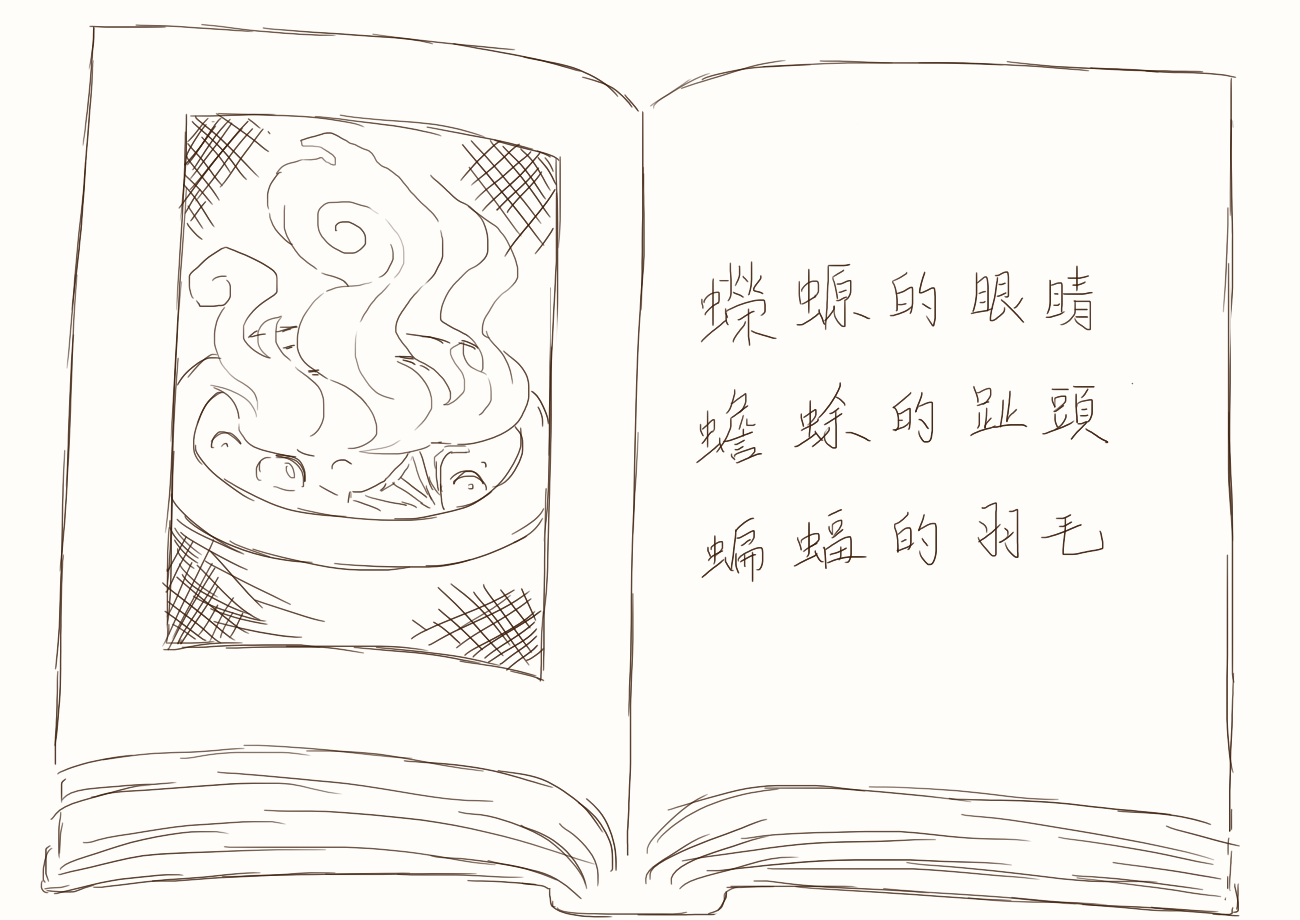 蠑螈的眼睛
蟾蜍的趾頭
蝙蝠的羽毛